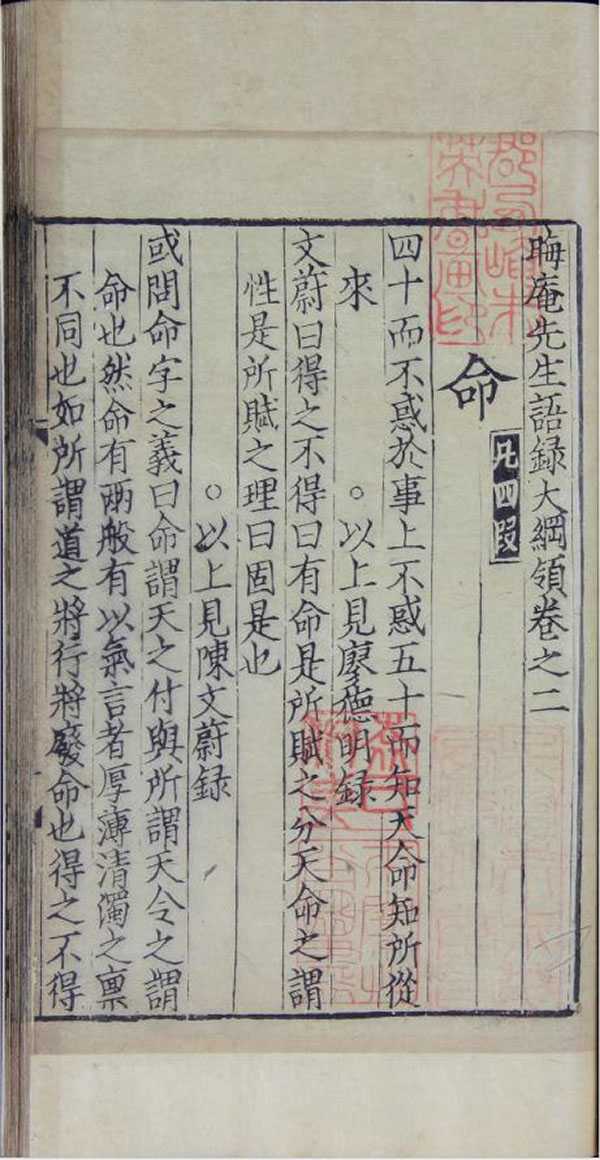 晦庵先生語録大綱領卷之二
命 凡四段
四十而不惑於事上不惑五十而知天命知所從
來 ○以上見廖德明録
文蔚曰得之不得曰有命是所賦之分天命之謂
性是所賦之理曰固是也
○以上見陳文蔚録
或問命字之義曰命謂天之付與所謂天令之謂
命也然命有兩般有以氣言者厚薄清濁之禀
不同也如所謂道之將行將廢命也得之不得